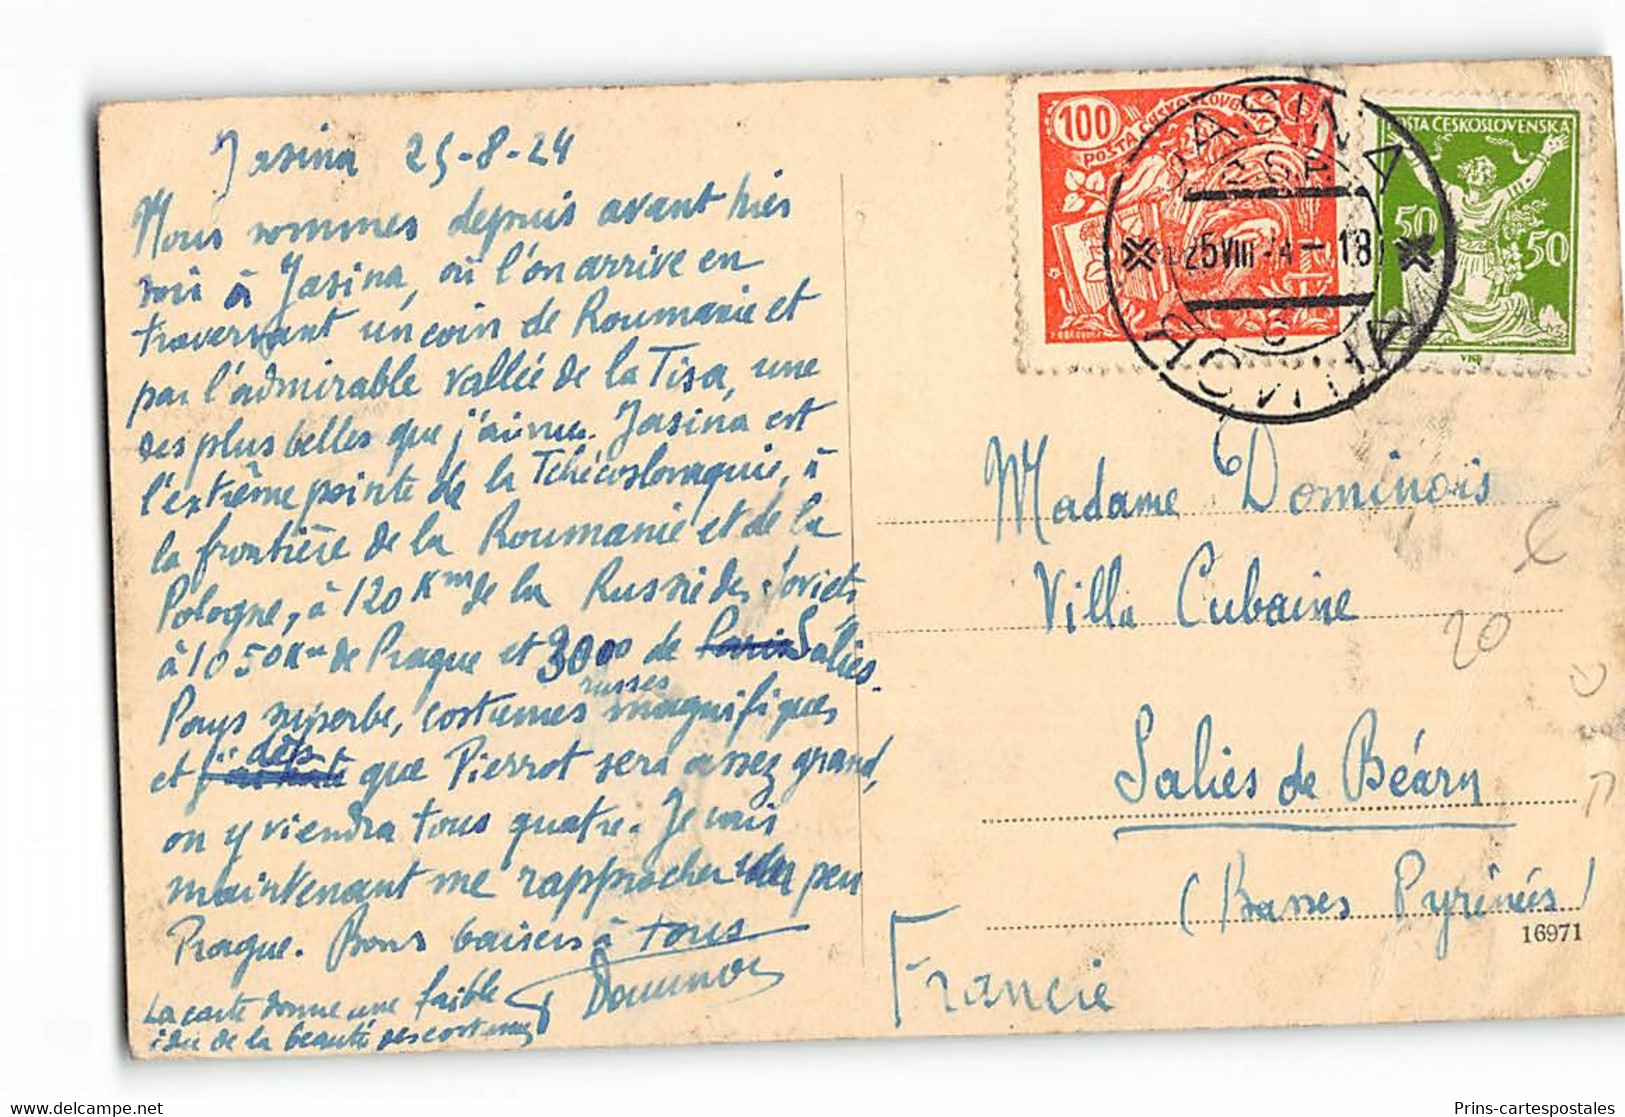 Jasina 25-8-24
Nous sommes depuis avant hier
soir à Jasina, où l'on arrive en
traversant un coin de Roumanie et
par l'admirable vallée de la Tisa, une
des plus belles que j'aime. Jasina est
l'extrême pointe de la Tchécoslovaquie, à
la frontière de la Roumanie et de la
Pologne, à 120 Km de la Russie des Soviets
à 1050 Km de Prague et 3000 de Paris Salies.
russes
Pays superbe, costumes magnifiques
dès
et que Pierrot sera assez grand,
on y viendra tous quatre. Je vais
maintenant me rapprocher un peu
Prague. Bons baisers à tous
Dominois
La carte donne une faible
idée de la beauté des costumes
100
POŠTA ČESKOSLOVENSKÁ
POŠTA ČESKOSLOVENSKÁ
50 50
JASINA
25 VIII 24 - 18
Madame Dominois
Villa Cubaine
Salies de Béarn
(Basses Pyrénées)
16971
Francie
20
delcampe.net
Prins-cartespostales